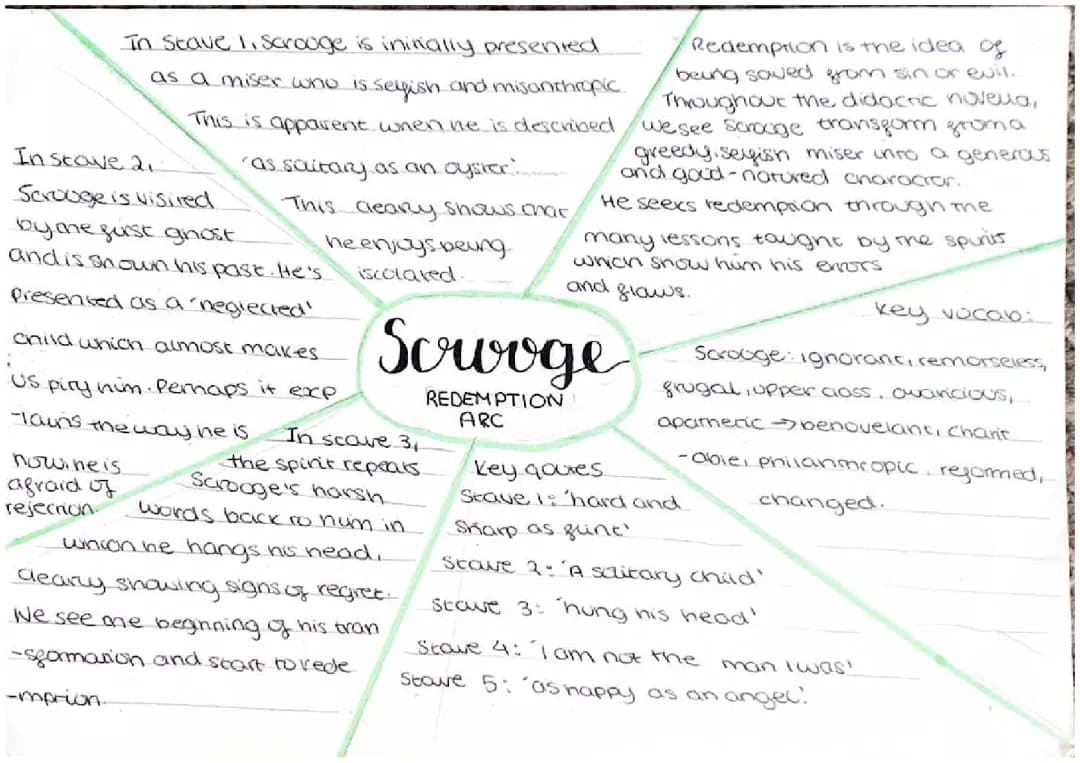 In Stave 1, Scrooge is initially presented
as a miser who is selfish and misanthropic
This is apparent when he is described
'as solitary as an oyster'.
This cleary shows that
he enjoys being
iscolated.
Redemption is the idea of
being saved from sin or evil.
Throughout the didactic novella,
we see Scrooge transform from a
greedy, selfish miser into a generous
and good-natured character.
He seeks redemption through the
many lessons taught by the spirits
which show him his errors
and flaws.
Key vocab:
Scrooge: ignorant, remorseless,
frugal, upper class, avaricious,
apathetic → benovelant, charit
-able, philanthropic, reformed,
changed.
In stave 2,
Scrooge is visited
by the first ghost
and is shown his past. He's
presented as a 'neglected'
child which almost makes
us pity him. Perhaps it exp
-lains the way he is
now. he is
afraid of
rejection.
Scrooge
REDEMPTION
ARC
In stave 3,
the spirit repeats
Scrooge's harsh
words back to him in
which he hangs his head,
clearly showing signs of regret.
We see the beginning of his tran
-sformation and start to rede
-mption.
Key qoutes
Stave 1: 'hard and
sharp as flint'
Stave 2: 'A solitary child'
Stave 3: 'hung his head'
Stave 4: 'I am not the man I was'
Stave 5: 'as happy as an angel'.